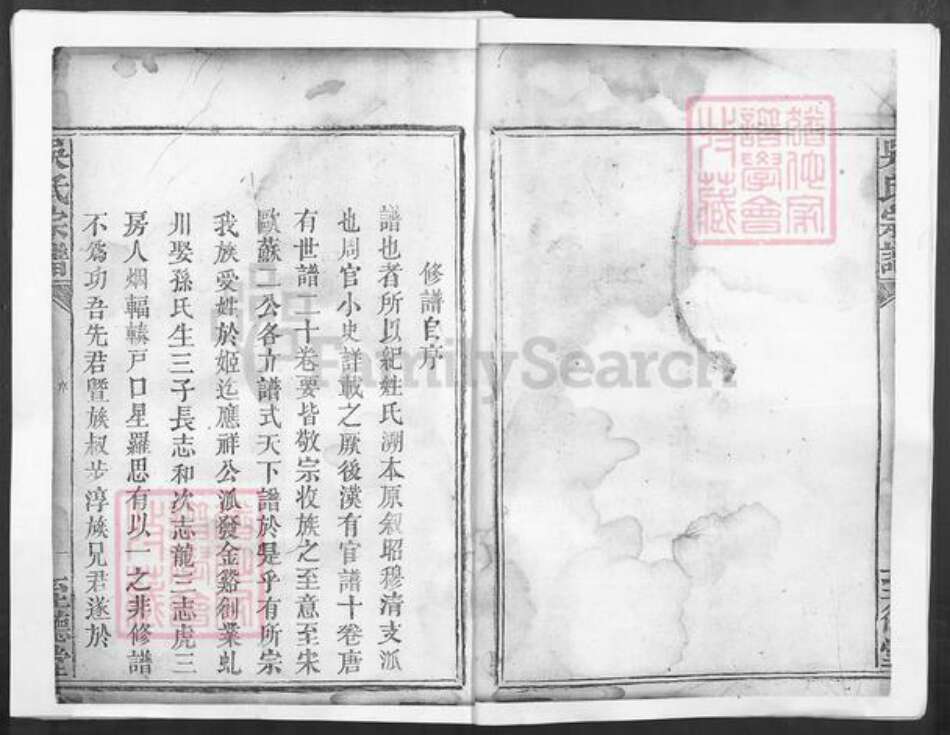 吳氏宗譜
至德堂
修譜自序
譜也者所以紀姓氏溯本原叙昭穆清支派
也周官小史詳載之厥後漢有官譜十卷唐
有世譜二十卷要皆敬宗收族之至意至宋
歐蘇二公各立譜式天下譜於是乎有所宗
我族受姓於姬迄應祥公派發金谿創業虬
川娶孫氏生三子長志和次志龍三志虎三
房人烟輻輳戶口星羅思有以一之非修譜
不為功吾先君暨族叔步淳族兄君遂於
吳氏宗譜
序
一
至德堂
FamilySearch